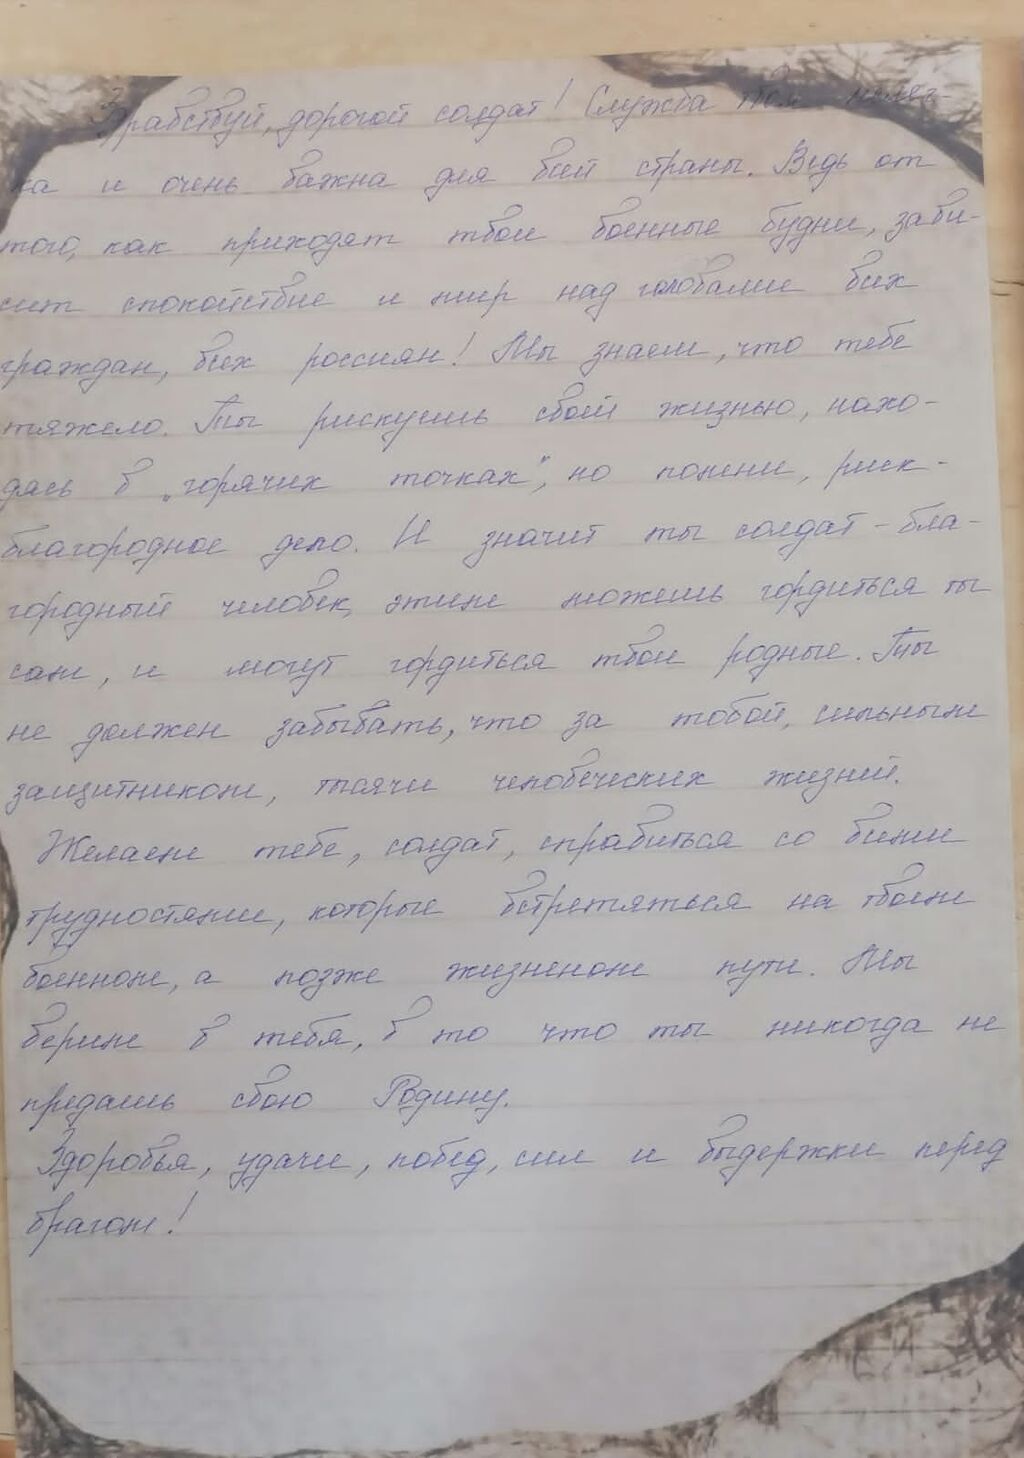 Здравствуй, дорогой солдат! Служба твоя нелег-
ка и очень важна для всей страны. Ведь от
того, как приходят твои военные будни, зави-
сит спокойствие и мир над головами всех
граждан, всех россиян! Мы знаем, что тебе
тяжело. Ты рискуешь своей жизнью, нахо-
дясь в „горячих точках", но помни, риск-
благородное дело. И значит ты солдат - бла-
городный человек, этим можешь гордиться ты
сам, и могут гордиться твои родные. Ты
не должен забывать, что за тобой, сильным
защитником, тысячи человеческих жизней.
Желаем тебе, солдат, справиться со всеми
трудностями, которые встретяться на твоем
военном, а позже жизненом пути. Мы
верим в тебя, в то что ты никогда не
предашь свою Родину.
Здоровья, удачи, побед, сил и выдержки перед
врагом!